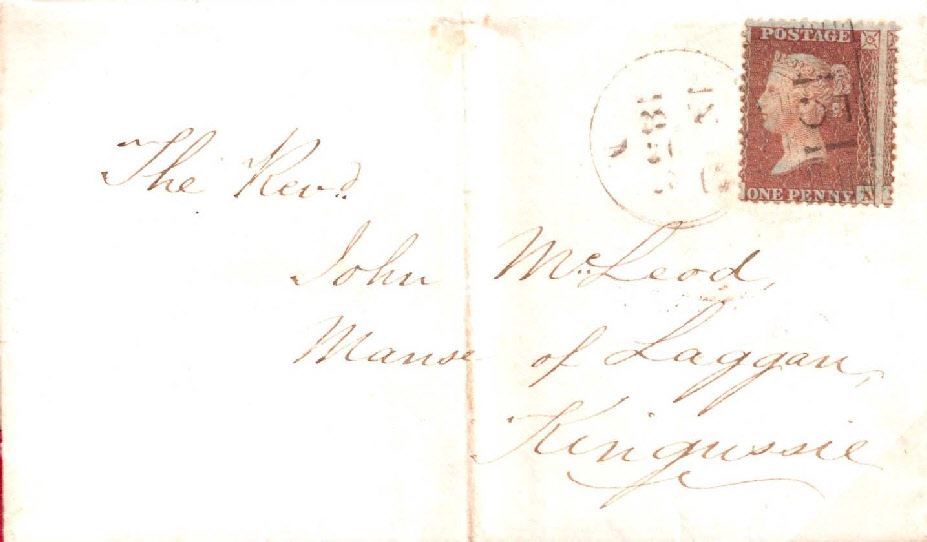 POSTAGE
131
ONE PENNY
The Revd.
John McLeod,
Manse of Laggan,
Kingussie